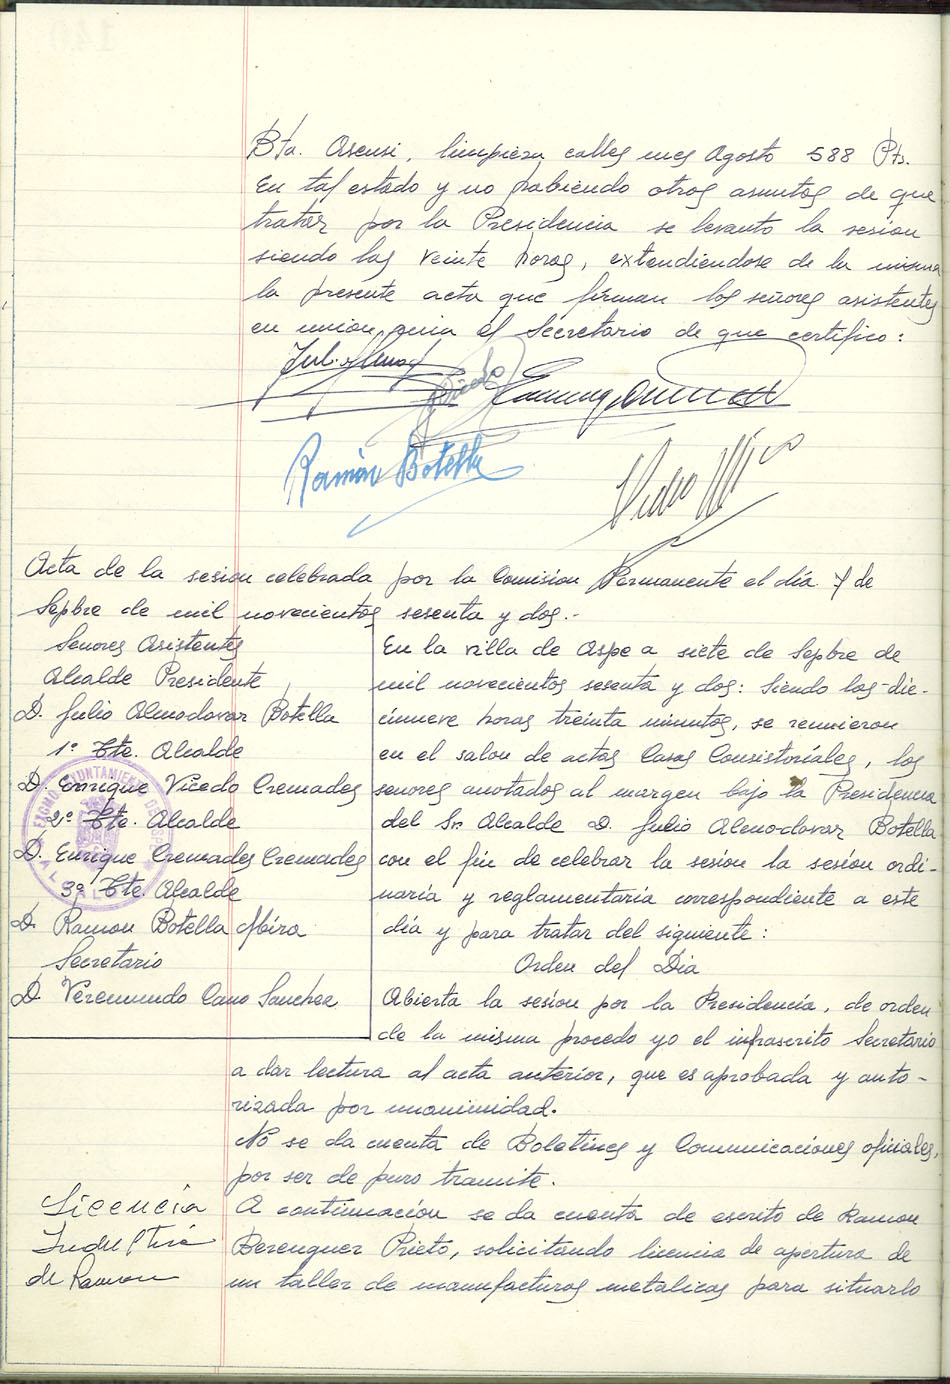 Bta. Asensi, limpieza calles mes Agosto 588 Pts.
En tal estado y no habiendo otros asuntos de que
tratar por la Presidencia se levanto la sesion
siendo las veinte horas, extendiendose de la misma
la presente acta que firman los señores asistentes
en union mia el Secretario de que certifico:
Ramón Botella
Acta de la sesion celebrada por la Comision Permanente el día 7 de
Sepbre de mil novecientos sesenta y dos.-
Señores Asistentes
Alcalde Presidente
D. Julio Almodovar Botella
1º Tte. Alcalde
D. Enrique Vicedo Cremades
2º Tte. Alcalde
D. Enrique Cremades Cremades
3º Tte. Alcalde
D. Ramon Botella Mira
Secretario
D. Veremundo Cano Sanchez
En la villa de Aspe a siete de Sepbre de
mil novecientos sesenta y dos: Siendo las die-
cinueve horas treinta minutos, se reunieron
en el salon de actos Casas Consistoriales, los
señores anotados al margen bajo la Presidencia
del Sr. Alcalde D. Julio Almodovar Botella
con el fin de celebrar la sesion la sesión ordi-
naria y reglamentaria correspondiente a este
día y para tratar del siguiente:
Orden del Dia
Abierta la sesión por la Presidencia, de orden
de la misma procedo yo el infrascrito Secretario
a dar lectura al acta anterior, que es aprobada y auto-
rizada por unanimidad.
No se da cuenta de Boletines y Comunicaciones oficiales,
por ser de puro tramite.
Licencia
de Ramon
A continuación se da cuenta de escrito de Ramon
Berenguer Prieto, solicitando licencia de apertura de
un taller de manufacturas metalicas para situarlo